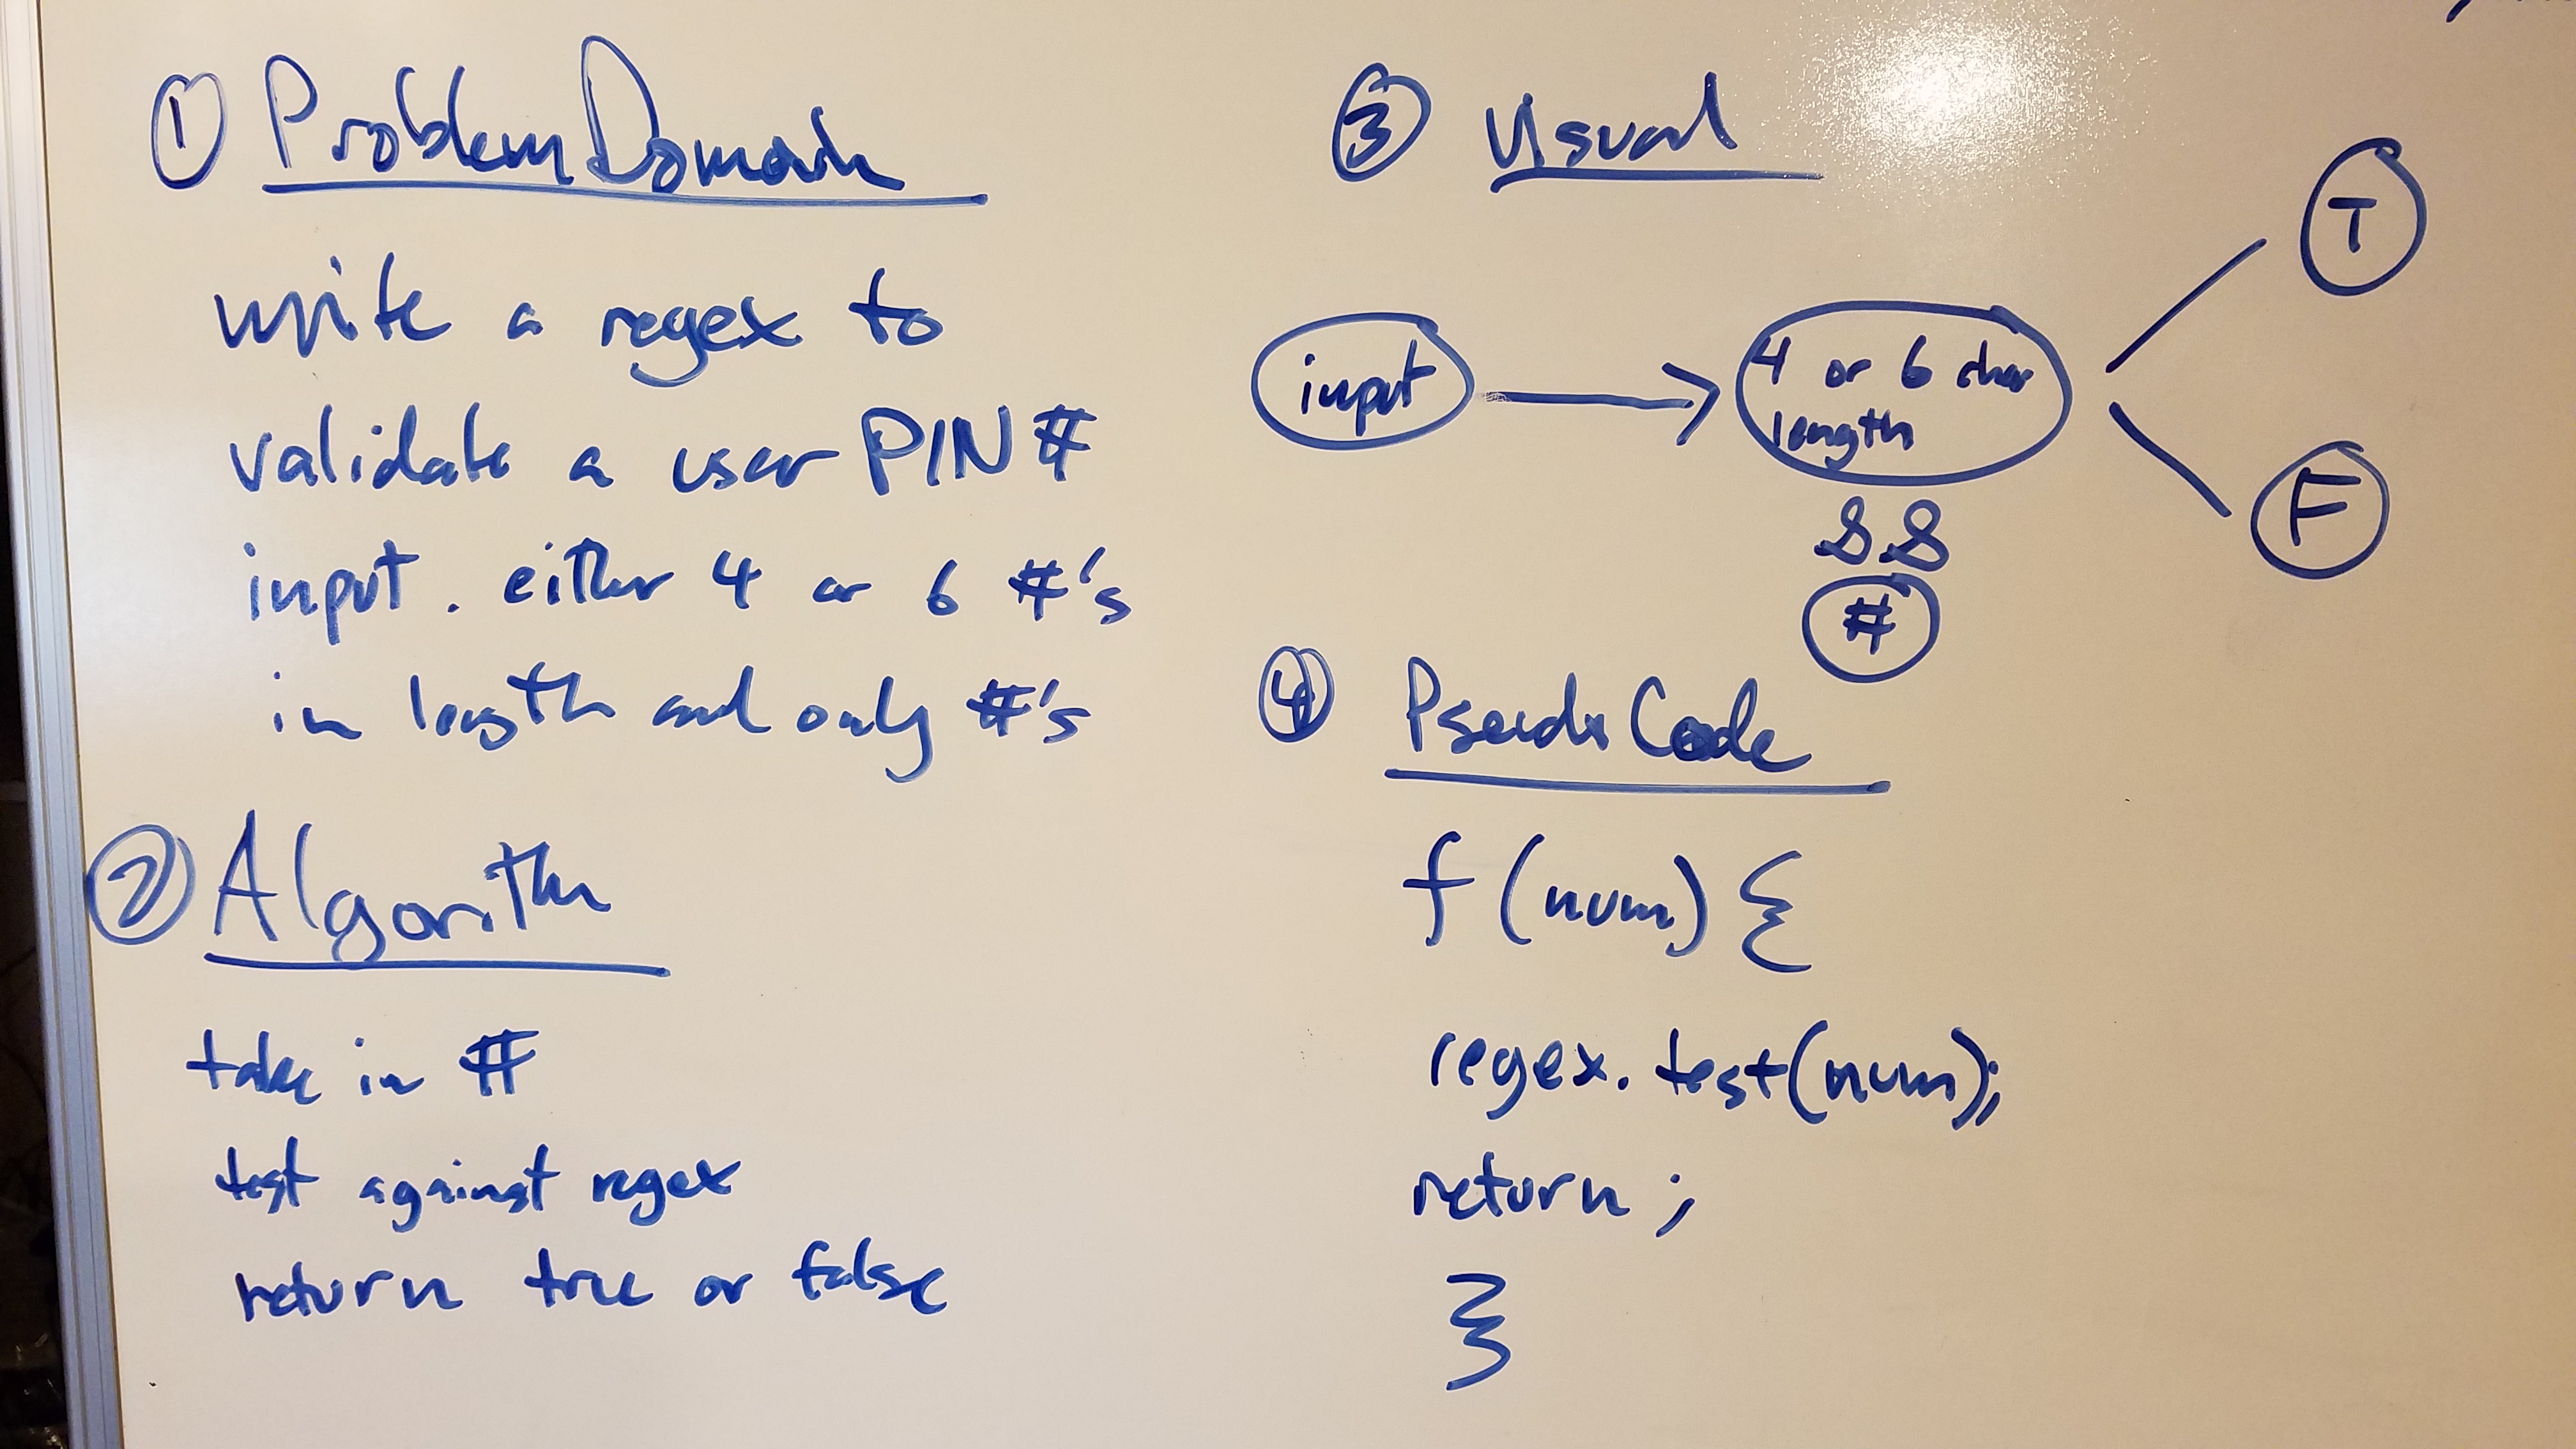 ① Problem Domain
write a regex to
validate a user PIN #
input. either 4 or 6 #'s
in length and only #'s
② Algorithm
take in #
test against regex
return true or false
③ Visual
input
4 or 6 char
length
&&
#
T
F
④ Pseudo Code
f (num) {
regex.test(num);
return ;
}